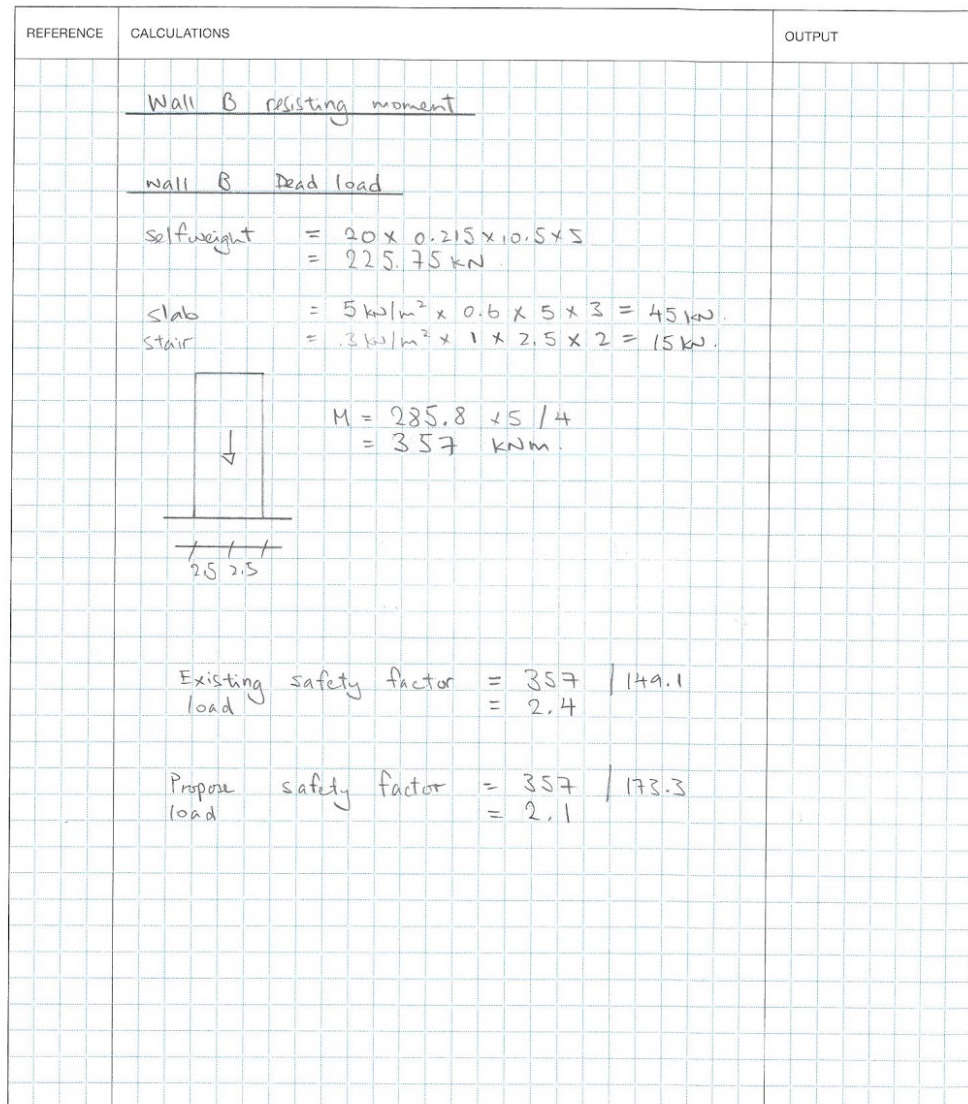 REFERENCE CALCULATIONS OUTPUT
Wall B resisting moment
Wall B Dead load
selfweight = 20 × 0.215 × 10.5 × 5
= 225.75 kN
slab = 5 kN/m² × 0.6 × 5 × 3 = 45 kN.
stair = 3 kN/m² × 1 × 2.5 × 2 = 15 kN.
M = 285.8 × 5 / 4
= 357 kNm.
2.5 2.5
Existing safety factor = 357 / 149.1
load = 2.4
Propose safety factor = 357 / 173.3
load = 2.1